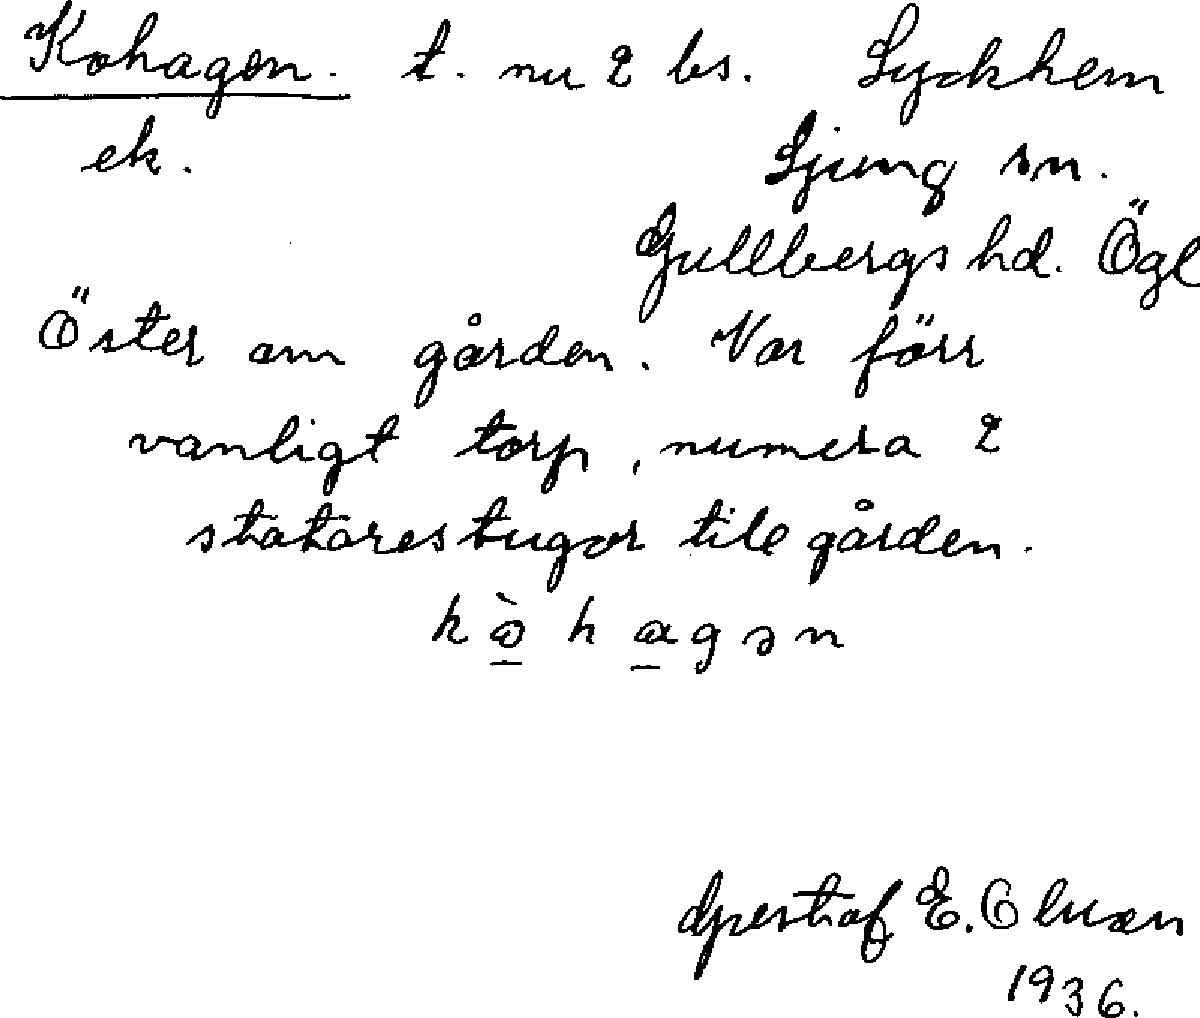 Kohagen. t. nu 2 bs. Lyckhem
ek. Ljung sn.
Gullbergs hd. Ögl
Öster om gården. Var förr
vanligt torp, numera 2
statarestugor till gården.
kò̠ h a̠ g ə n
E.
1936.